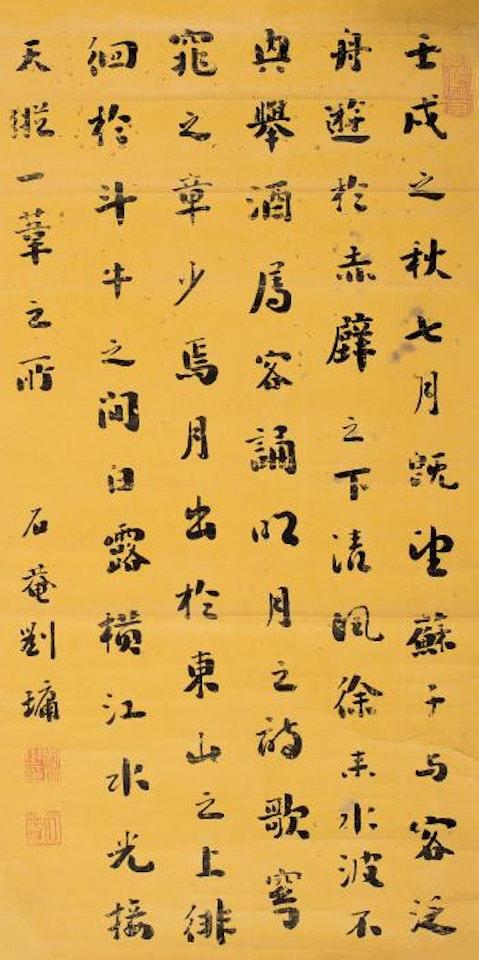 壬戌之秋七月既望蘇子与客泛
舟遊於赤壁之下清風徐来水波不
興舉酒属客誦明月之詩歌窈
窕之章少焉月出於東山之上徘
徊於斗牛之間白露橫江水光接
天縱一葦之所
石菴劉墉